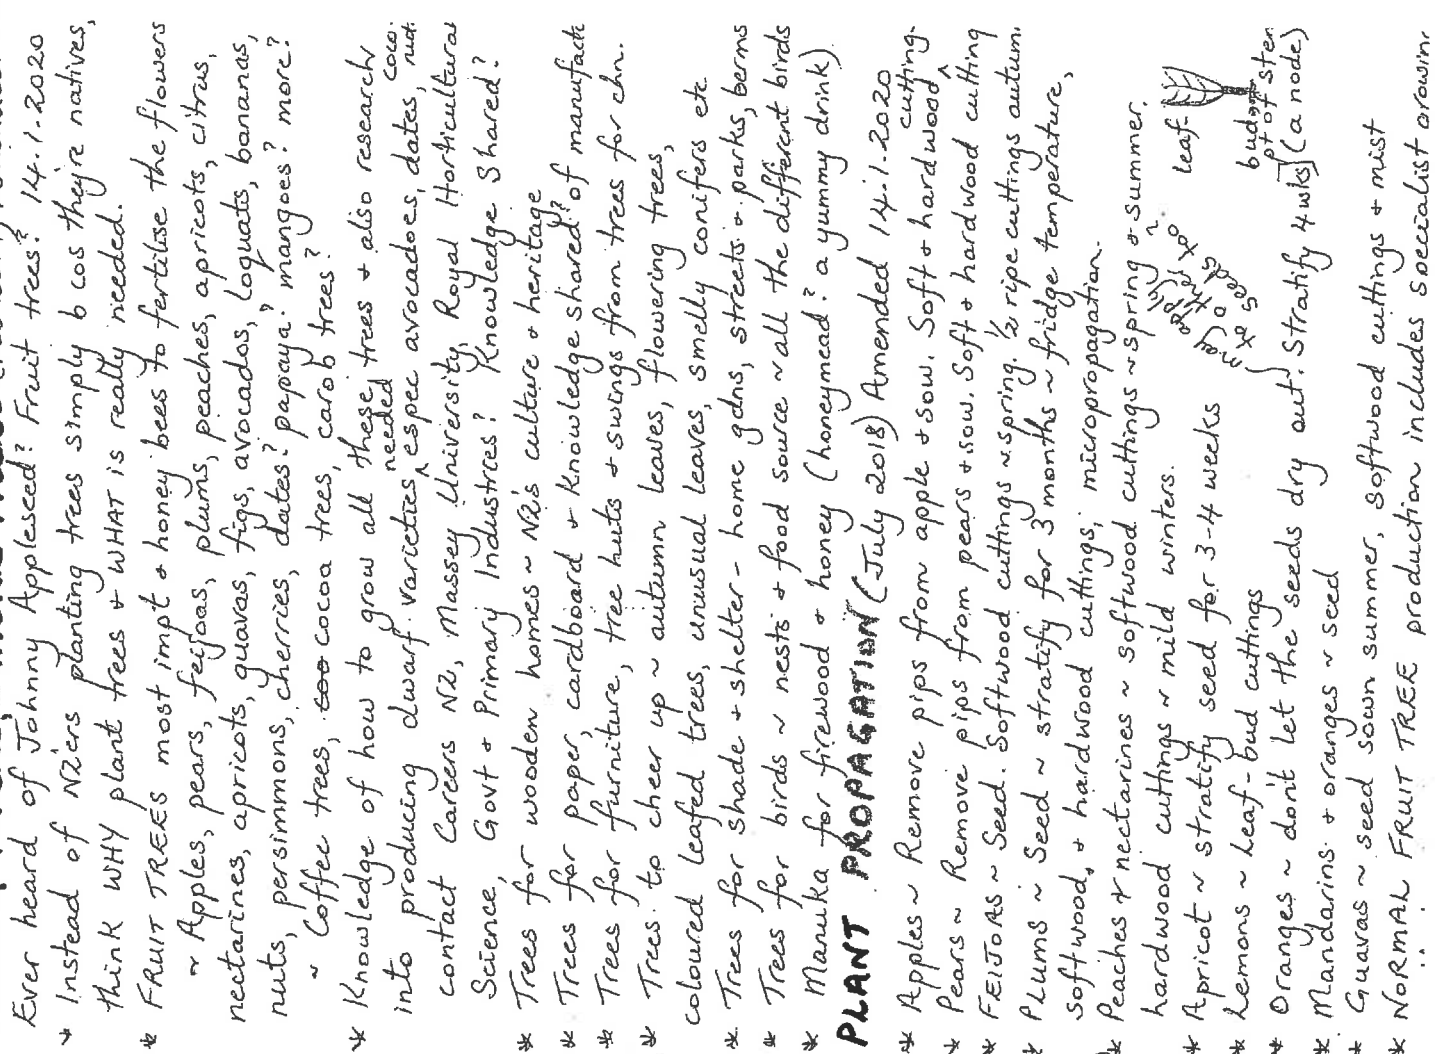 Ever heard of Johnny Appleseed? Fruit trees? 14.1.2020
* Instead of NZ'ers planting trees simply b cos they're natives,
think WHY plant trees + WHAT is really needed.
* FRUIT TREES most impt + honey bees to fertilise the flowers
~ Apples, pears, feijoas, plums, peaches, apricots, citrus,
nectarines, apricots, guavas, figs, avocados, loquats, bananas,
nuts, persimmons, cherries, dates? papaya? mangoes? more?
~ Coffee trees, cocoa trees, carob trees?
* Knowledge of how to grow all these trees + also research
into producing dwarf varieties needed espec avocadoes, dates, coconut.
contact Careers NZ, Massey University, Royal Horticultural
Science, Govt + Primary Industries? Knowledge shared?
* Trees for wooden homes ~ NZ's culture + heritage
* Trees for paper, cardboard + knowledge shared? of manufactr
* Trees for furniture, tree huts + swings from trees for chn.
* Trees to cheer up ~ autumn leaves, flowering trees,
coloured leafed trees, unusual leaves, smelly conifers etc
* Trees for shade + shelter - home gdns, streets + parks, berms
* Trees for birds ~ nests + food source ~ all the different birds
* Manuka for firewood + honey (honeymead? a yummy drink)
PLANT PROPAGATION (July 2018) Amended 14.1.2020
* Apples ~ Remove pips from apple + sow. Soft + hardwood cutting.
* Pears ~ Remove pips from pears + sow. Soft + hardwood cutting
* FEIJOAS ~ Seed. Softwood cuttings ~ spring. ½ ripe cuttings autum.
* Plums ~ Seed ~ stratify for 3 months ~ fridge temperature,
softwood, + hardwood cuttings, micropropagation.
* Peaches + nectarines ~ softwood cuttings ~ spring + summer.
hardwood cuttings ~ mild winters.
* Apricot ~ stratify seed for 3-4 weeks
may apply
to other
seeds
* Lemons ~ Leaf-bud cuttings
leaf
bud +
pt of stem
(a node)
* Oranges ~ don't let the seeds dry out. Stratify 4 wks
* Mandarins + oranges ~ seed
* Guavas ~ seed sown summer, softwood cuttings + mist
* NORMAL FRUIT TREE production includes specialist growin